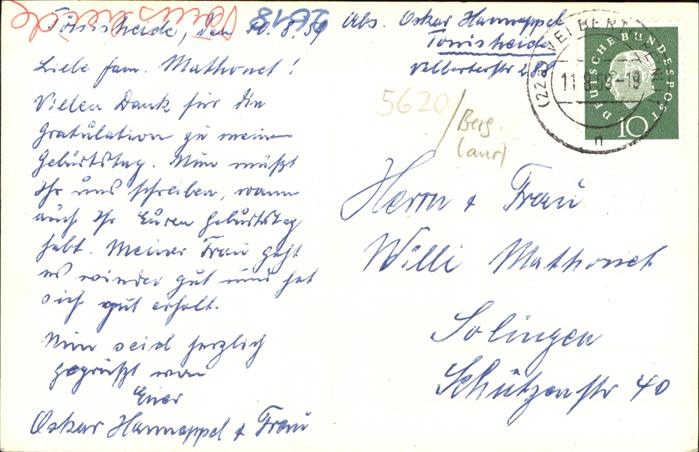 Tönisheide
2018
Tönisheide, den 10.8.59
Liebe Fam. Mathonet!
Vielen Dank für die
Gratulation zu meinem
Geburtstag. Nun müßt
Ihr uns schreiben, wann
auch Ihr Euren Geburtstag
habt. Meiner Frau geht
es wieder gut und hat
sich gut erholt.
Nun seid herzlich
gegrüßt von
Euer
Oskar Hannappel + Frau
Abs. Oskar Hannappel
Tönisheide
Velberterstr.
5620/
Berg.
(22a) VELBERT
11.8.59-18
n
DEUTSCHE BUNDESPOST
10
Herrn + Frau
Willi Mathonet
Solingen
Schützenstr 40